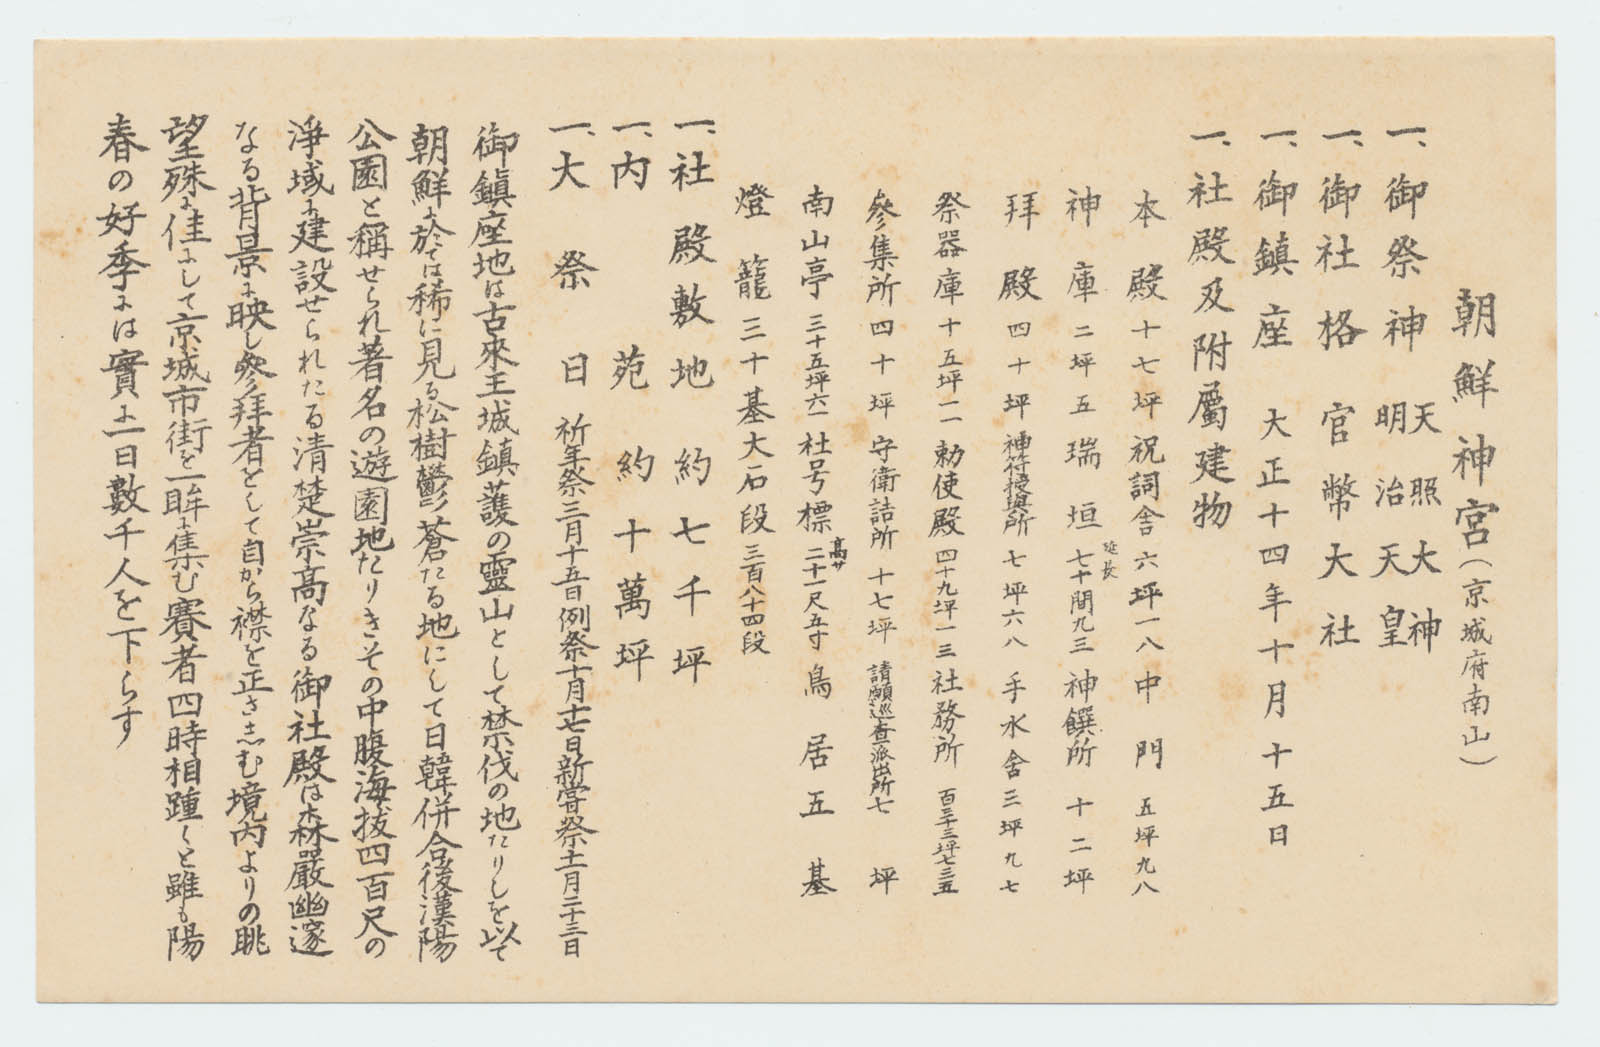 朝鮮神宮（京城府南山）
一、御祭神 天照大神
明治天皇
一、御社格 官幣大社
一、御鎮座 大正十四年十月十五日
一、社殿及附屬建物
本殿 十七坪 祝詞舎 六坪一八 中門 五坪九八
神庫 二坪五 瑞垣 延長七十間九三 神饌所 十二坪
拜殿 四十坪 神符授與所 七坪六八 手水舎 三坪九七
祭器庫 十五坪二一 勅使殿 四十九坪一三 社務所 百三十三坪七三五
參集所 四十坪 守衛詰所 十七坪 請願巡査派出所 七坪
南山亭 三十五坪六一 社号標 高サ二十一尺五寸 鳥居 五基
燈籠 三十基 大石段 三百八十四段
一、社殿敷地 約七千坪
一、内苑 約十萬坪
一、大祭日 祈年祭三月十五日 例祭十月十七日 新嘗祭十一月二十三日
御鎭座地は古來王城鎮護の靈山として禁伐の地たりしを以て
朝鮮に於ては稀に見る松樹鬱蒼たる地にして日韓併合後漢陽
公園と稱せられ著名の遊園地たりきその中腹海拔四百尺の
淨域に建設せられたる清楚崇高なる御社殿は森嚴幽邃
なる背景に映し參拜者をして自から襟を正さしむ境内よりの眺
望殊に佳にして京城市街を一眸に集む賽者四時相踵くと雖も陽
春の好季には實に一日數千人を下らす